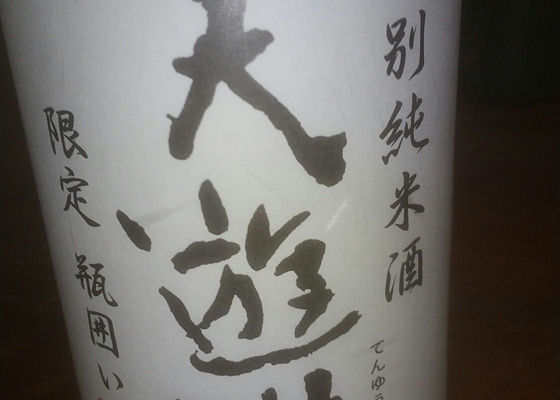 別純米酒
てんゆう
天遊
限定 瓶囲い